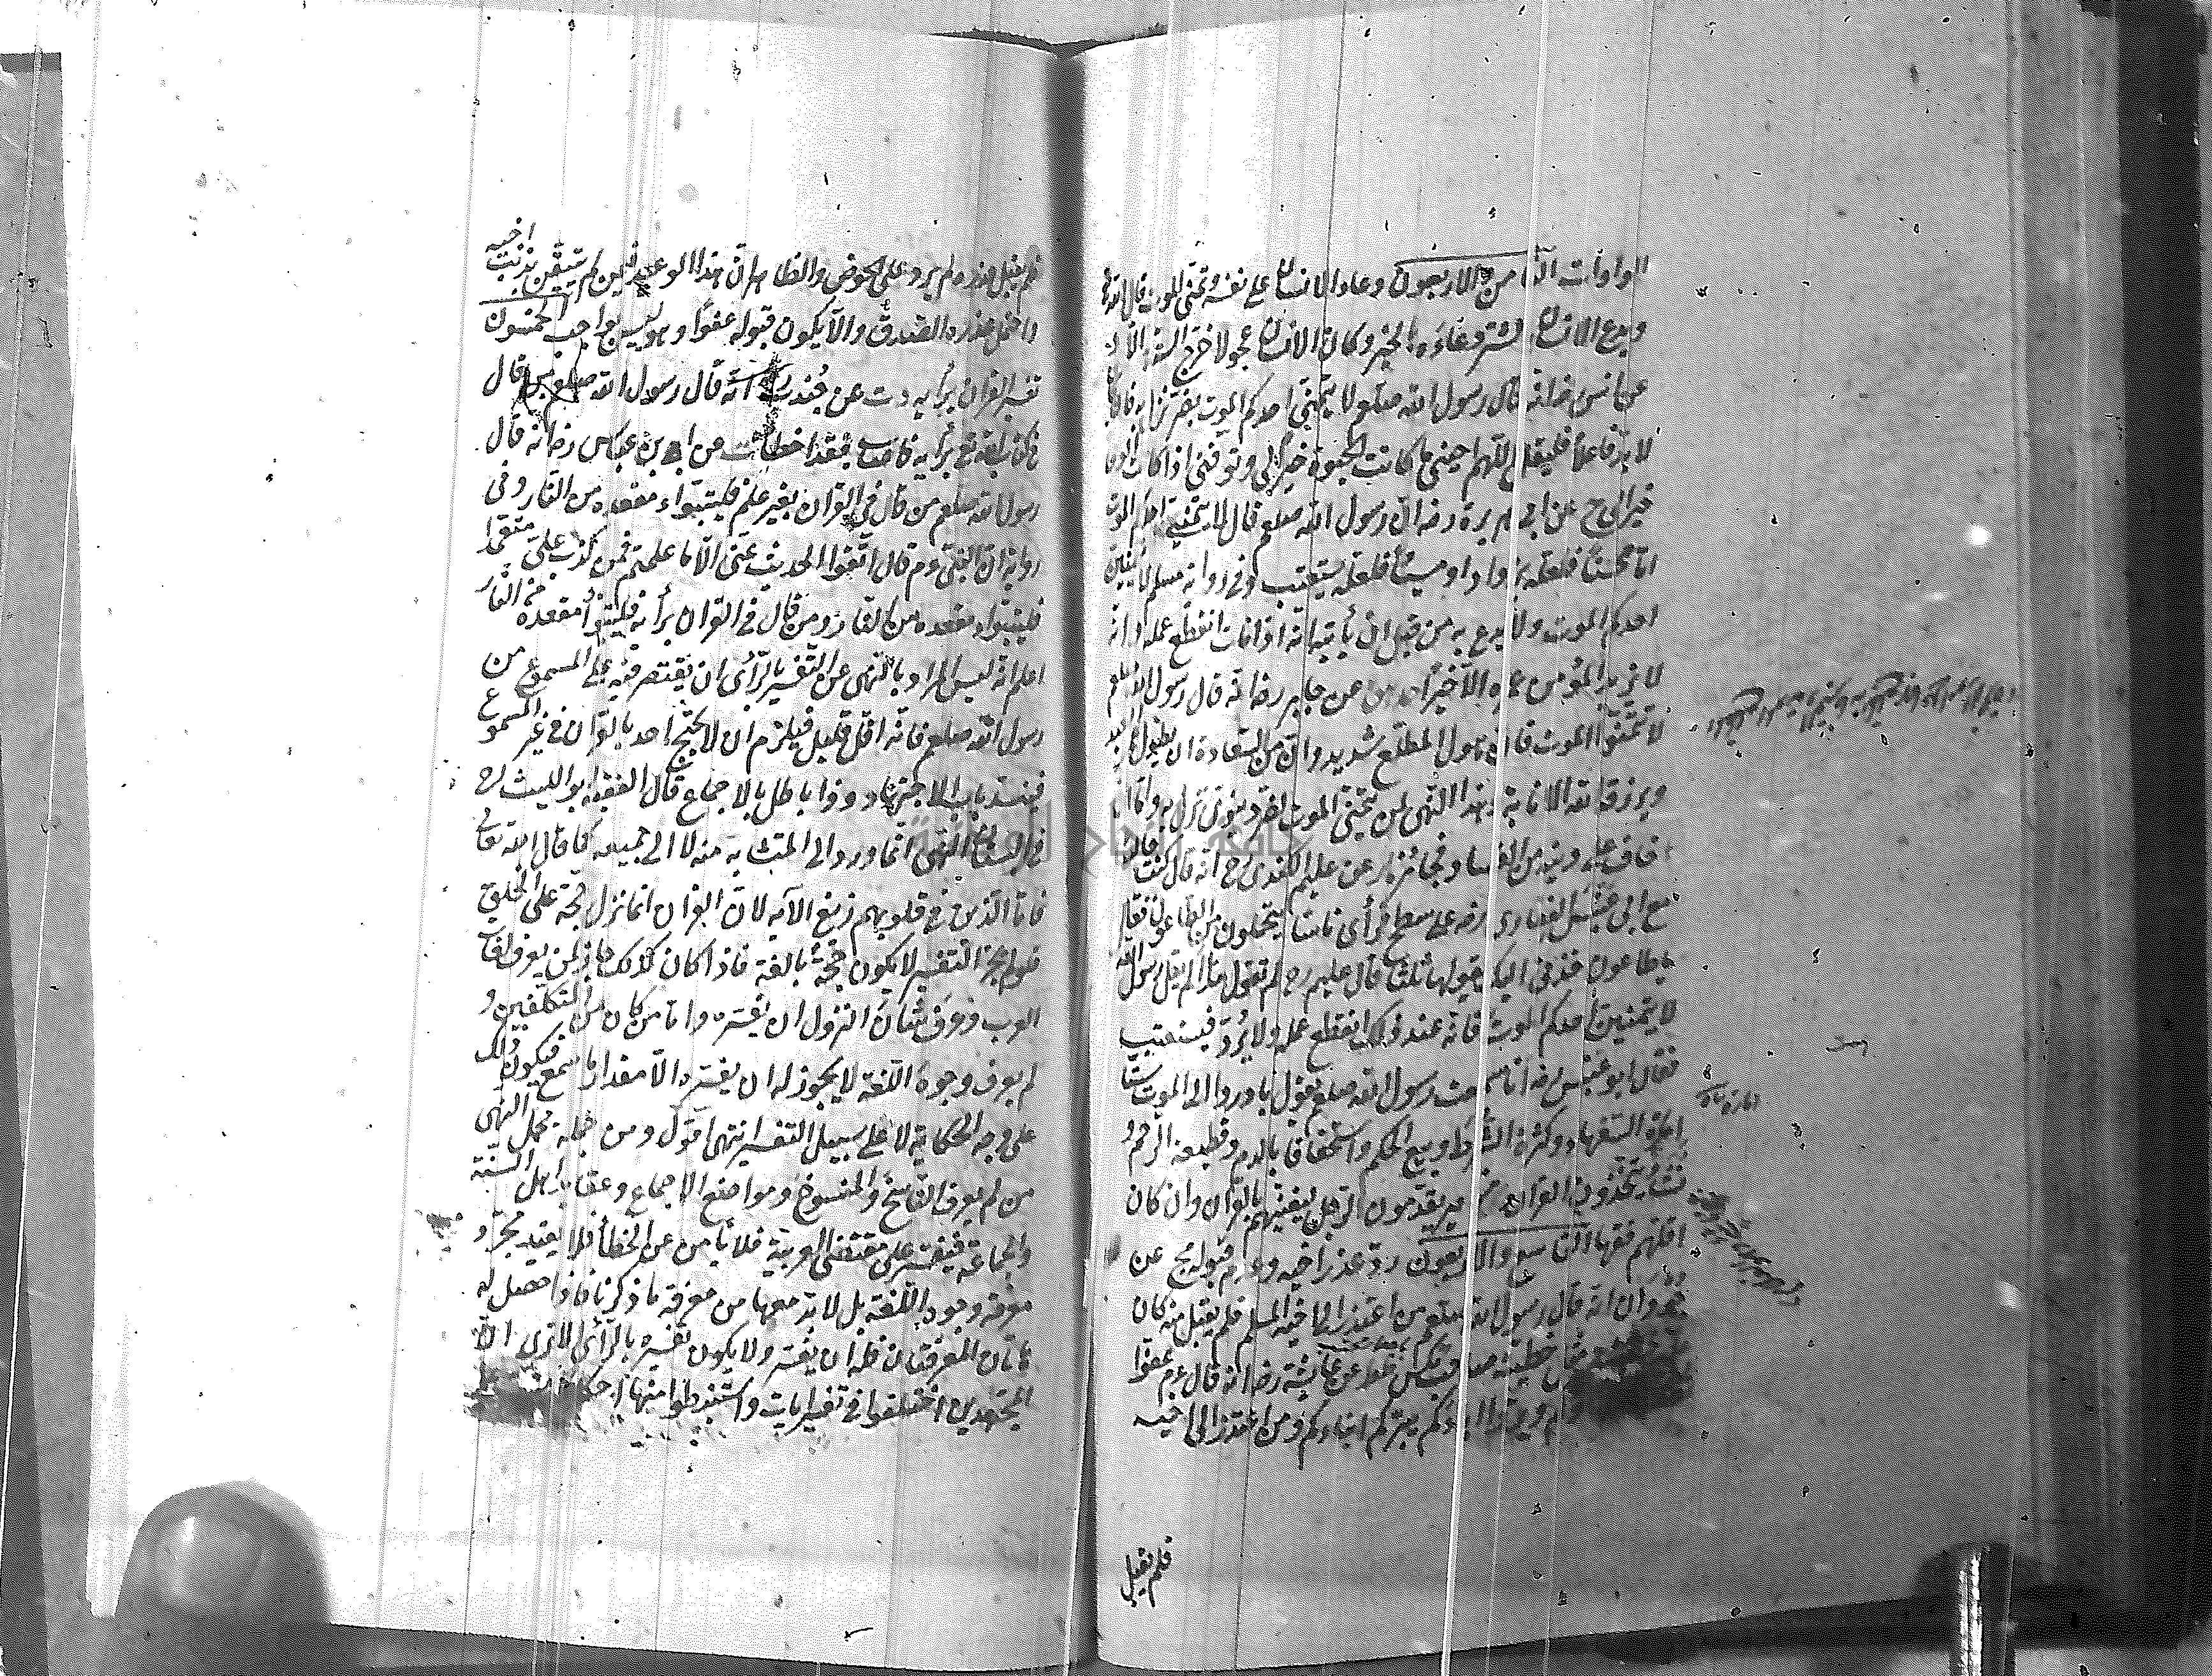 الوادات الثامن والاربعون دعاء الانسان على نفسه وتمنى الموت قال الله تعالى
ويدع الانسان بالشر دعاءه بالخير وكان الانسان عجولا خرج الستة الا د
عن انس رضه انه قال رسول الله صلعم لا يتمنى احدكم الموت بضر نزل به فان كان
لا بد فاعلا فليقل اللهم احينى ما كانت الحيوة خيرا لى وتوفنى اذا كانت الوفاة
خيرا لى خ عن ابى هريرة رضه ان رسول الله صلعم قال لا يتمنى احدكم الموت
اما محسنا فلعله يزداد او مسيئا فلعله يستعتب وفى رواية مسلم لا يتمنين
احدكم الموت ولا يدع به من قبل ان يأتيه انه اذا مات انقطع عمله وانه
لا يزيد المؤمن عمره الا خيرا عن جابر رضه انه قال رسول الله صلعم
لا تتمنوا الموت فان هول المطلع شديد وان من السعادة ان يطول عمر العبد
ويرزقه الله الانابة وهذا النهى لمن يتمنى الموت لضر دنيوى نزل به واما ان
خاف على دينه من الفساد فجائز عن عليم الكندى رح انه قال كنت
مع ابى عبس الغفارى رضه على سطح فرأى ناسا يتحملون من الطاعون فقال
يا طاعون خذنى اليك يقولها ثلثا قال عليم رح لم تقول هذا الم يقل رسول الله
لا يتمنين احدكم الموت فانه عند ذلك انقطع عمله ولا يرد فيستعتب
فقال ابو عبس رضه انا سمعت رسول الله صلعم يقول بادروا الى الموت ستا
امارة السفهاء وكثرة الشرط وبيع الحكم واستخفافا بالدم وقطيعة الرحم و
نشأ يتخذون القرآن مزامير يقدمون الرجل ليغنيهم بالقرآن وان كان
اقلهم فقها التاسع والاربعون رد عذر اخيه وعدم قبوله مج عن
جودان انه قال رسول الله صلعم من اعتذر الى اخيه المسلم فلم يقبل منه كان
عليه مثل خطيئة صاحب مكس طط عن عايشة رضه انه قال عم عفوا
وبروا اباءكم يبركم ابناءكم ومن اعتذر الى اخيه
فلم يقبل
اخيه
فلم يقبل عذره لم يرد على الحوض والظاهر ان هذا الوعيد فيمن لم يتيقن بذنب
واحتمل عذره الصدق والا يكون قبوله عفوا وهو ليس بواجب الخمسون
تفسير القرآن برأيه دت عن جندب رضه انه قال رسول الله صلعم من قال
فى كتاب الله تع برأيه فاصاب فقد اخطأ ت عن ابن عباس رضه انه قال
رسول الله صلعم من قال فى القرآن بغير علم فليتبوأ مقعده من النار وفى
رواية ان النبى عم قال اتقوا الحديث عنى الا ما علمتم فمن كذب على متعمدا
فليتبوأ مقعده من النار ومن قال فى القرآن برأيه فليتبوأ مقعده من النار
اعلم انه ليس المراد بالنهى عن التفسير بالرأى ان يقتصر فيه على المسموع من
رسول الله صلعم فانه اقل قليل فيلزم ان لا يحتج احد بالقرآن فى غير المسموع
فينسد باب الاجتهاد وذا باطل بالاجماع قال الفقيه ابو الليث رح
فى البستان النهى انما ورد الى المتشابه منه لا الى جميعه كما قال الله تعالى
فاما الذين فى قلوبهم زيغ الآية لان القرآن انما نزل حجة على الخلق
فلو لم يجز التفسير لا يكون حجة بالغة فاذا كان كذلك جاز لمن يعرف لغات
العرب وعرف شان النزول ان يفسره واما من كان من المتكلفين و
لم يعرف وجوه اللغة لا يجوز له ان يفسره الا مقدار ما سمع فيكون ذلك
على وجه الحكاية لا على سبيل التفسير انتهى اقول ومن جملة محمل النهى
من لم يعرف الناسخ والمنسوخ ومواضع الاجماع وعقايد اهل السنة
والجماعة فيفسر على مقتضى العربية فلا يأمن عن الخطأ فلا يفيد مجرد
معرفة وجوه اللغة بل لا بد معها من معرفة ما ذكرنا فاذا حصل له
هاتان المعرفتان فله ان يفسره ولا يكون تفسيره بالرأى الا ترى ان
المجتهدين اختلفوا فى تفسير ايات واستنبطوا منها احكاما